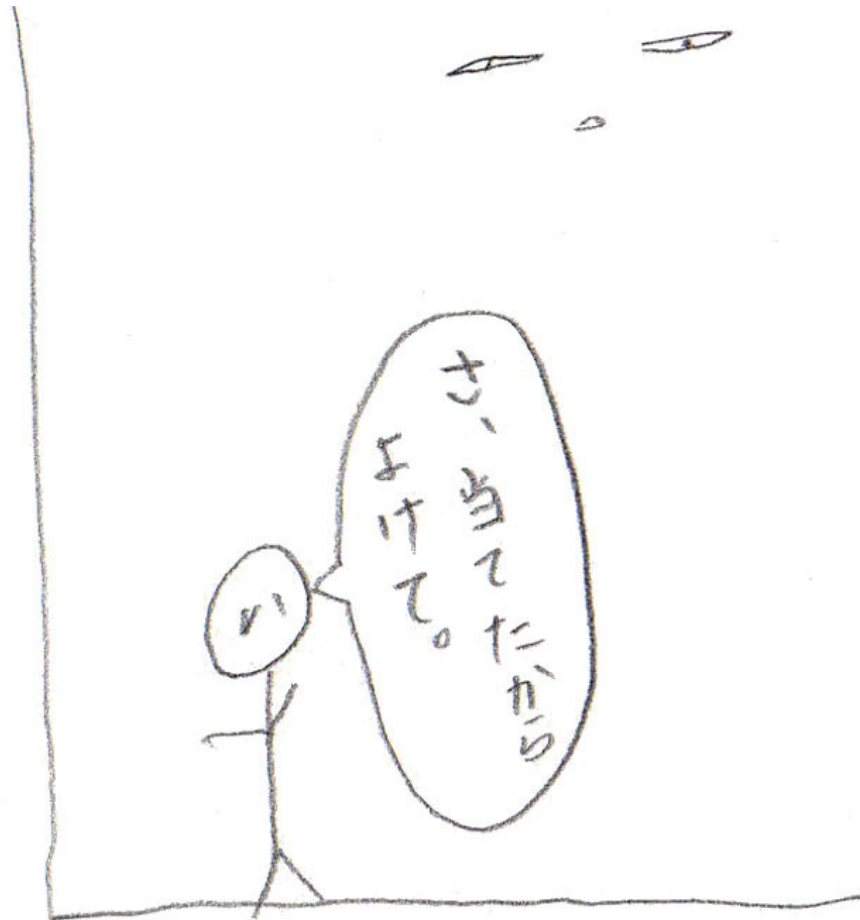 さ、当てたから
よけて。